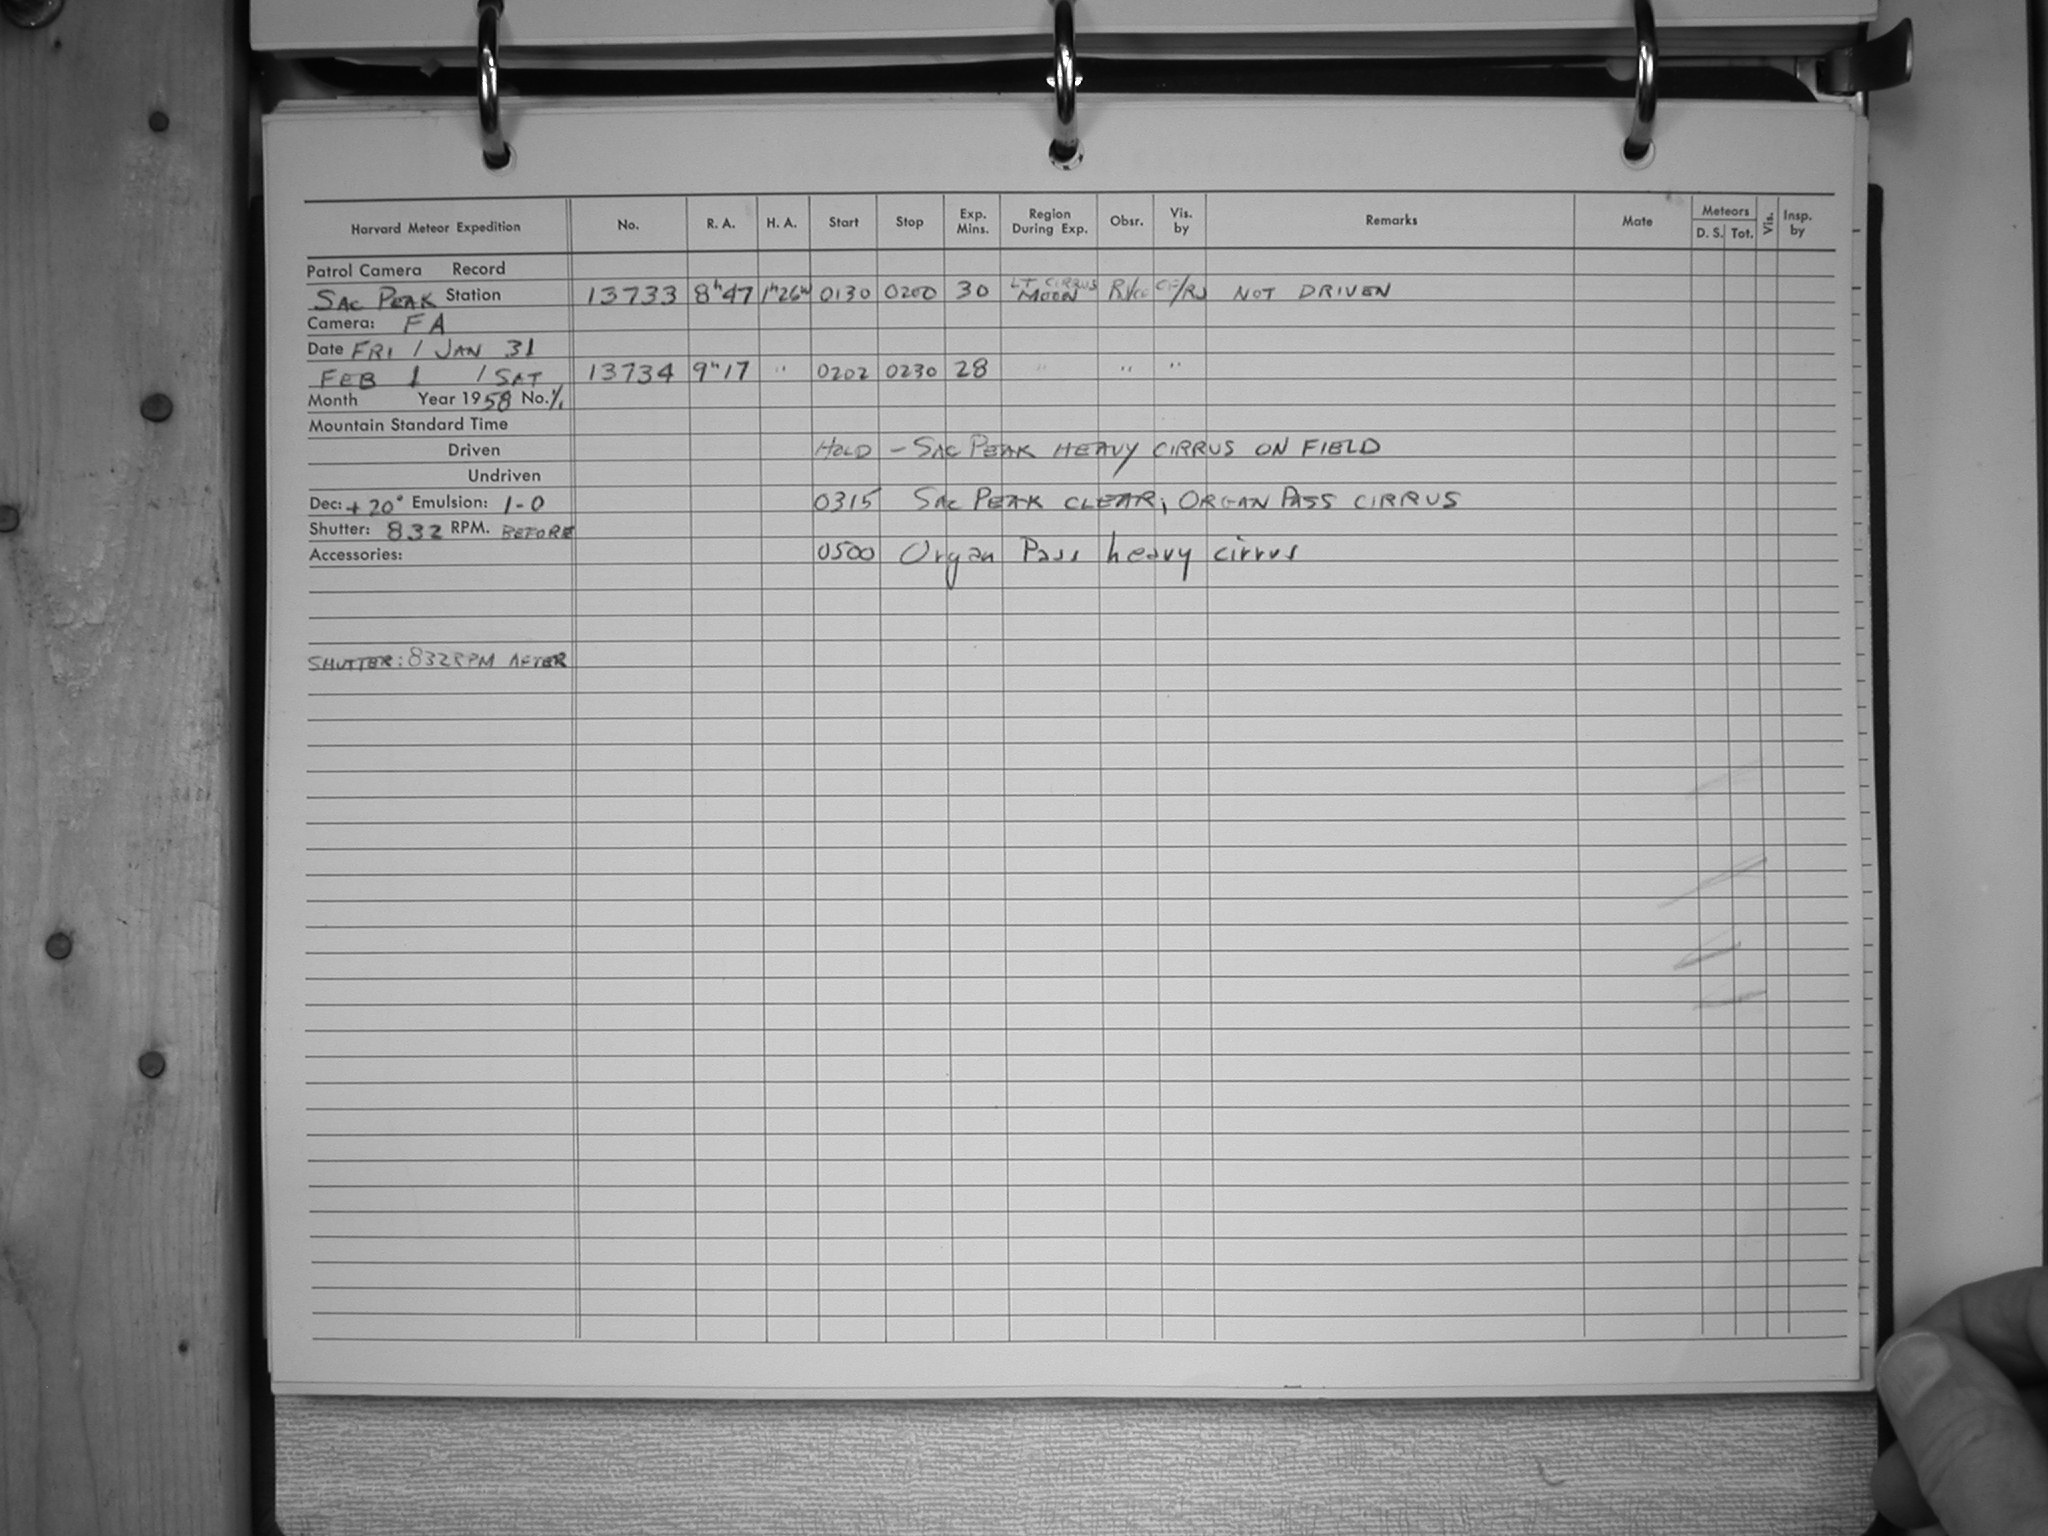 Harvard Meteor Expedition No. R. A. H. A. Start Stop Exp. Mins. Region During Exp. Obsr. Vis. by Remarks Mate Meteors D. S. Tot. Vis. Insp. by
Patrol Camera Record
SAC PEAK Station 13733 8h47 1h26m 0130 0200 30 LT CIRRUS MOON NOT DRIVEN
Camera: FA
Date FRI / JAN 31
FEB 1 / SAT 13734 9h17 " 0202 0230 28 " " "
Month Year 1958 No.
Mountain Standard Time
Driven HOLD - SAC PEAK HEAVY CIRRUS ON FIELD
Undriven
Dec: +20° Emulsion: 1-0 0315 SAC PEAK CLEAR; ORGAN PASS CIRRUS
Shutter: 832 RPM. BEFORE
Accessories: 0500 Organ Pass heavy cirrus
SHUTTER: 832 RPM AFTER